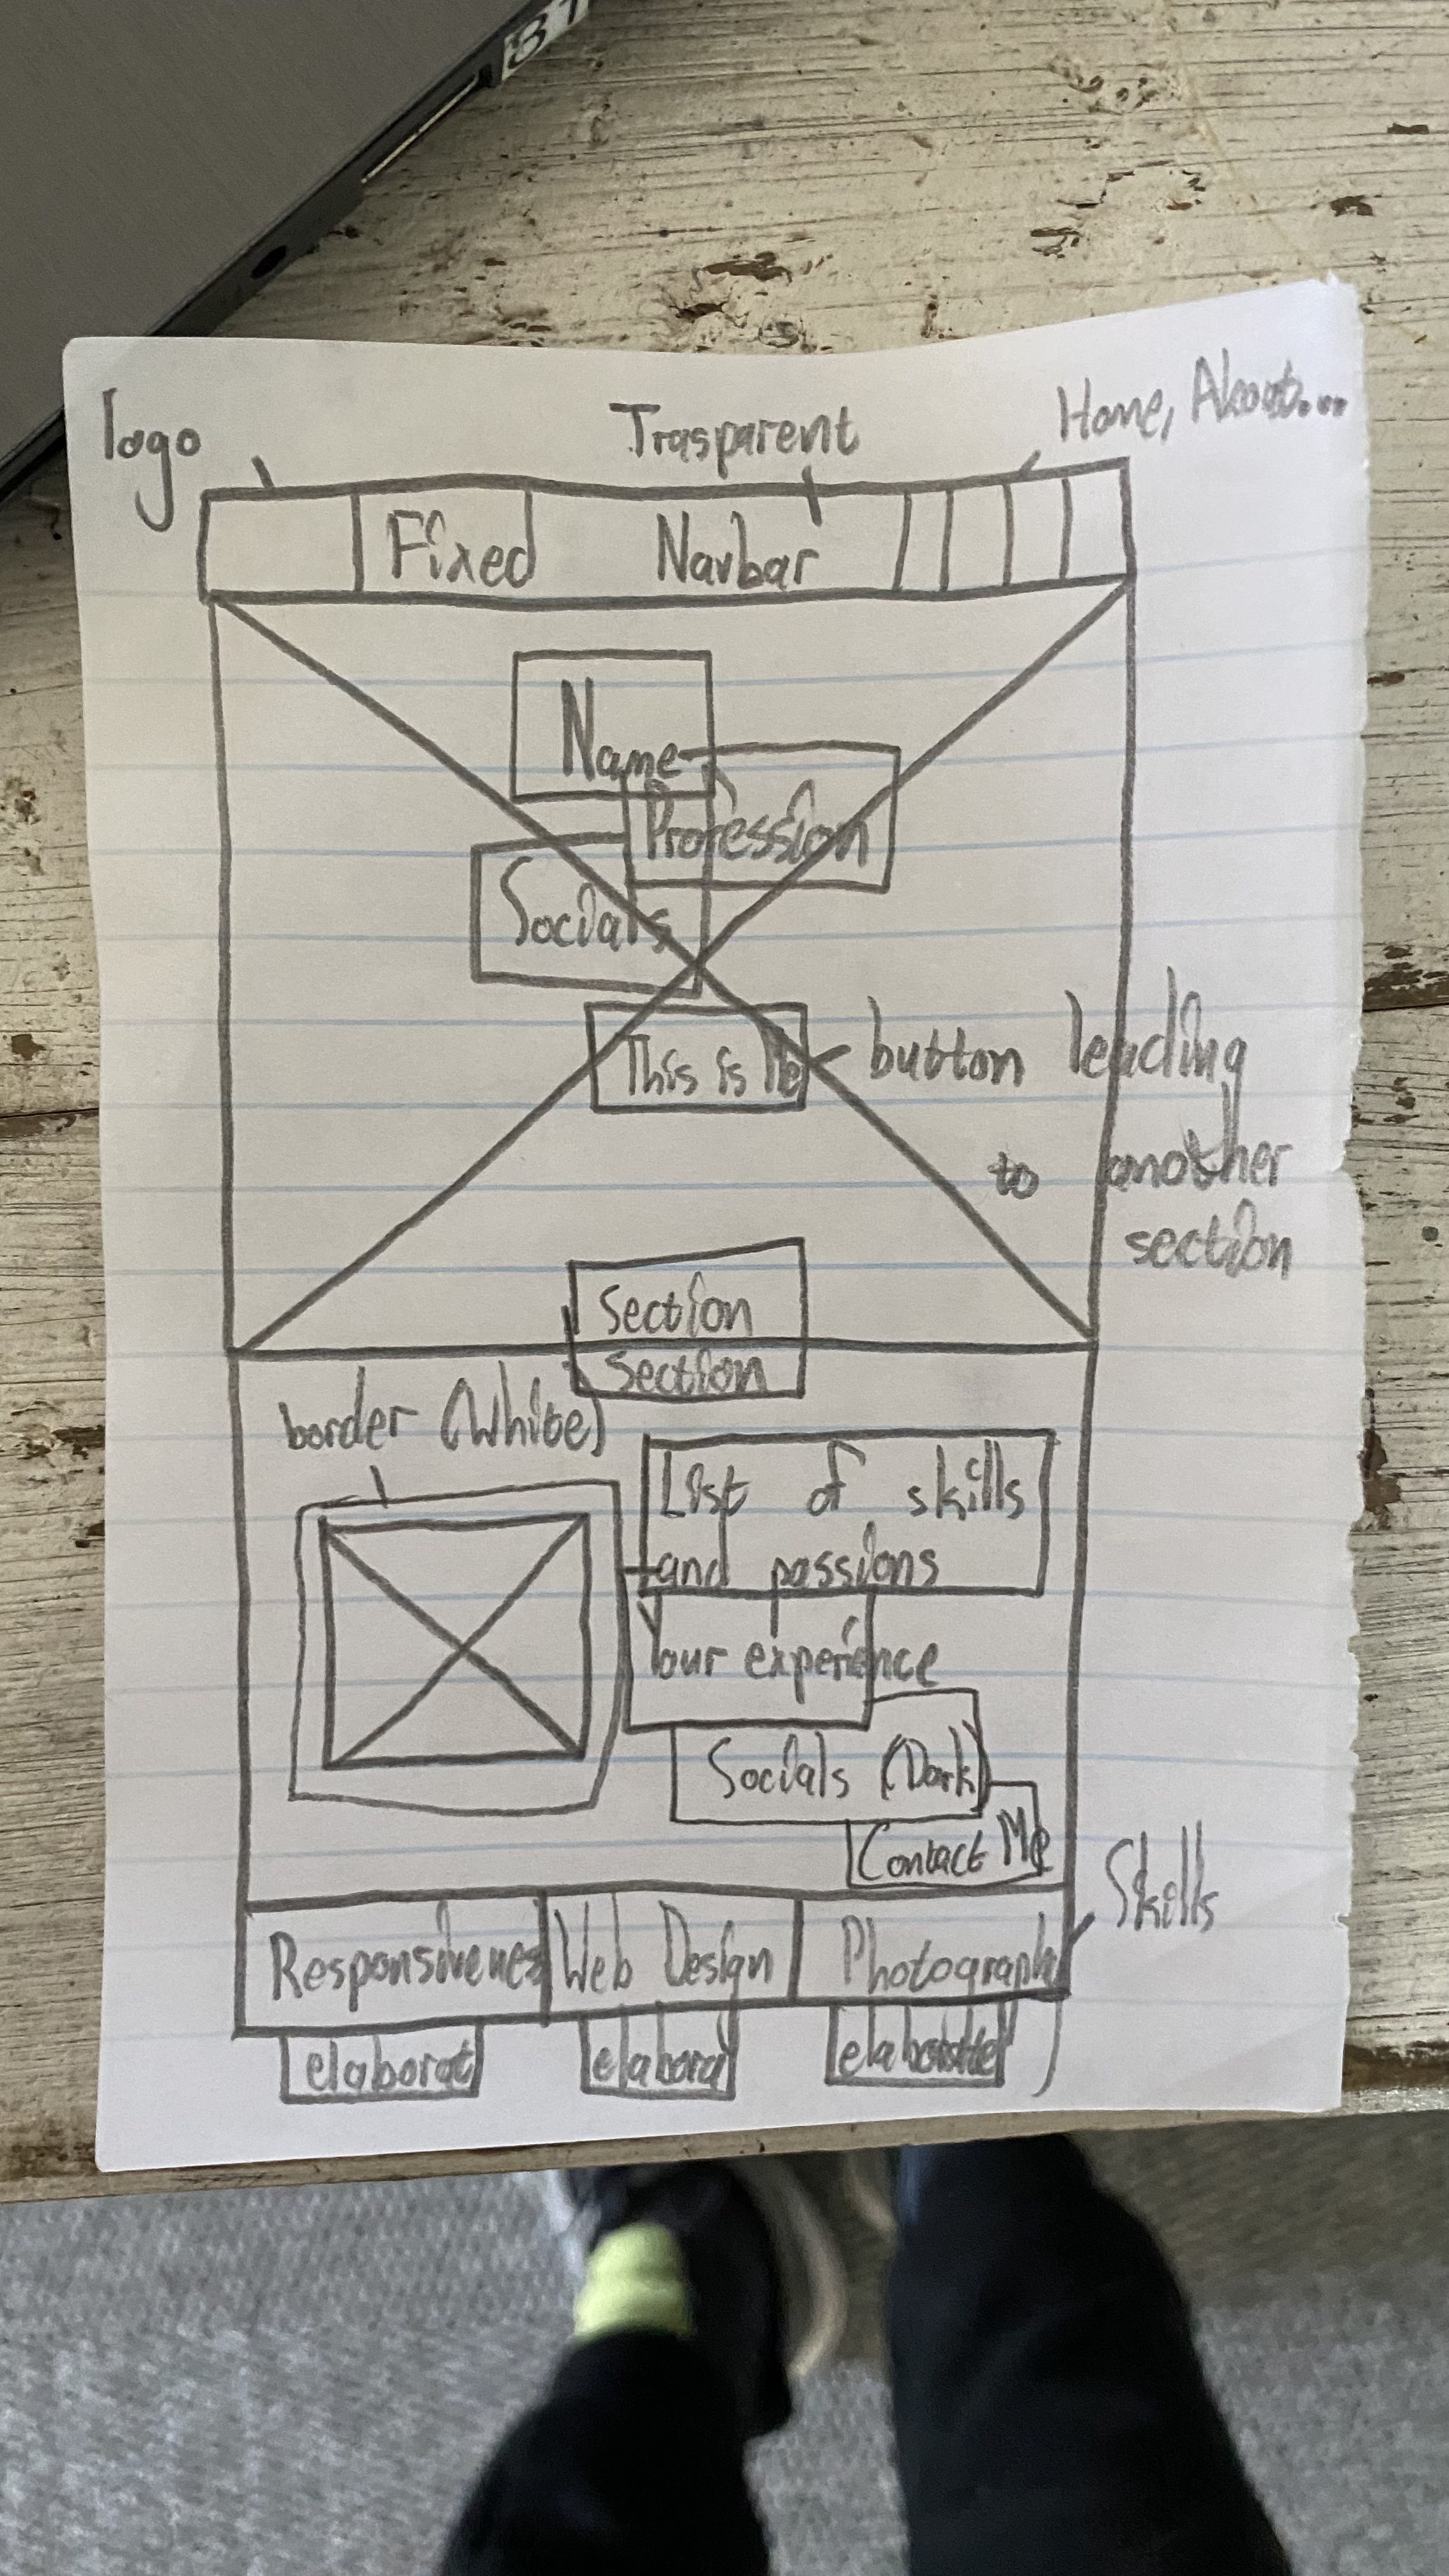 37
logo
Trasparent
Home, About...
Fixed
Navbar
Name
Profession
Socials
This is Me
button leading
to another
section
Section
Section
border (White)
List of skills
and passions
Your experience
Socials (Dark)
Contact Me
Skills
Responsiveness
Web Design
Photography
elaborat
elabora
elaborate